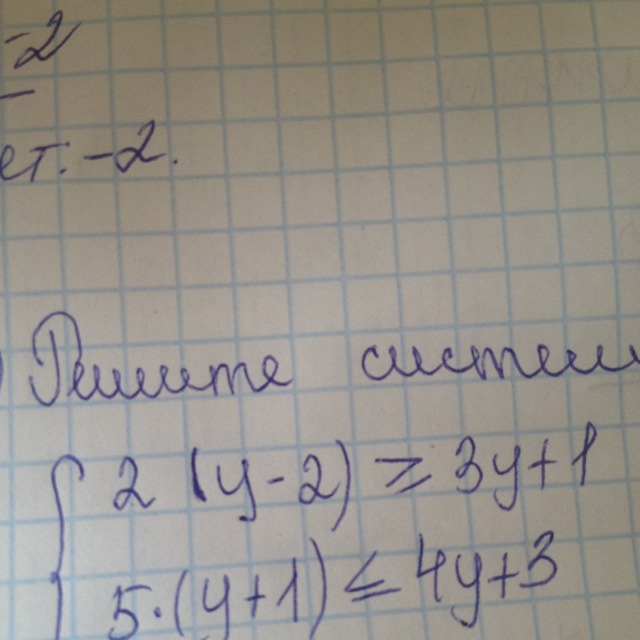 -2
ет: -2.
) Решите систем
2 (y-2) ≥ 3y+1
5·(y+1) ≤ 4y+3